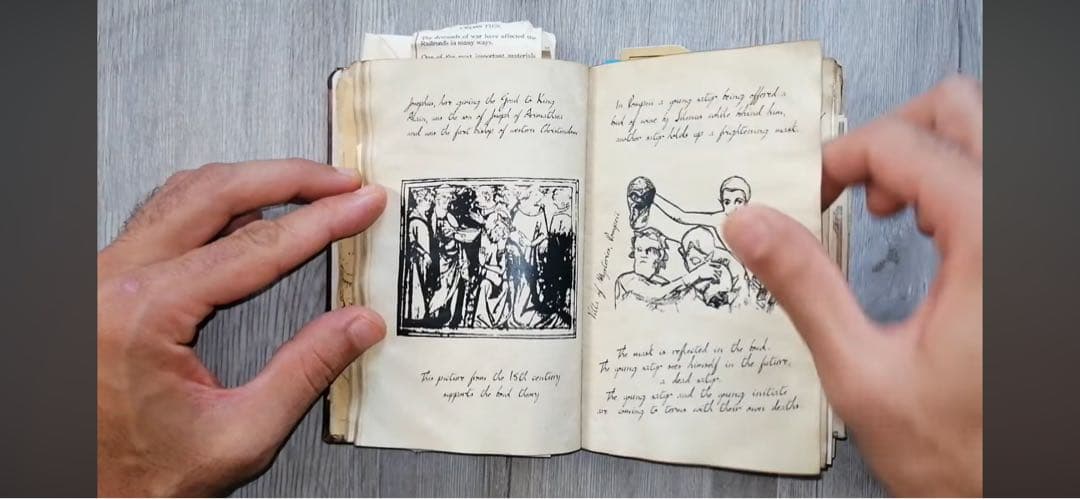 The demands of war have affected the
Railroads in many ways.
One of the most important materials
Josephus, here giving the Grail to King
Alain, was the son of Joseph of Arimathea
and was the first bishop of western Christendom
This picture from the 15th century
supports the bowl theory
In Pompeii a young satyr being offered a
bowl of wine by Silenus while behind him,
another satyr holds up a frightening mask.
Villa of Mysteries, Pompeii
The mask is reflected in the bowl.
The young satyr sees himself in the future,
a dead satyr.
The young satyr and the young initiate
are coming to terms with their own deaths.